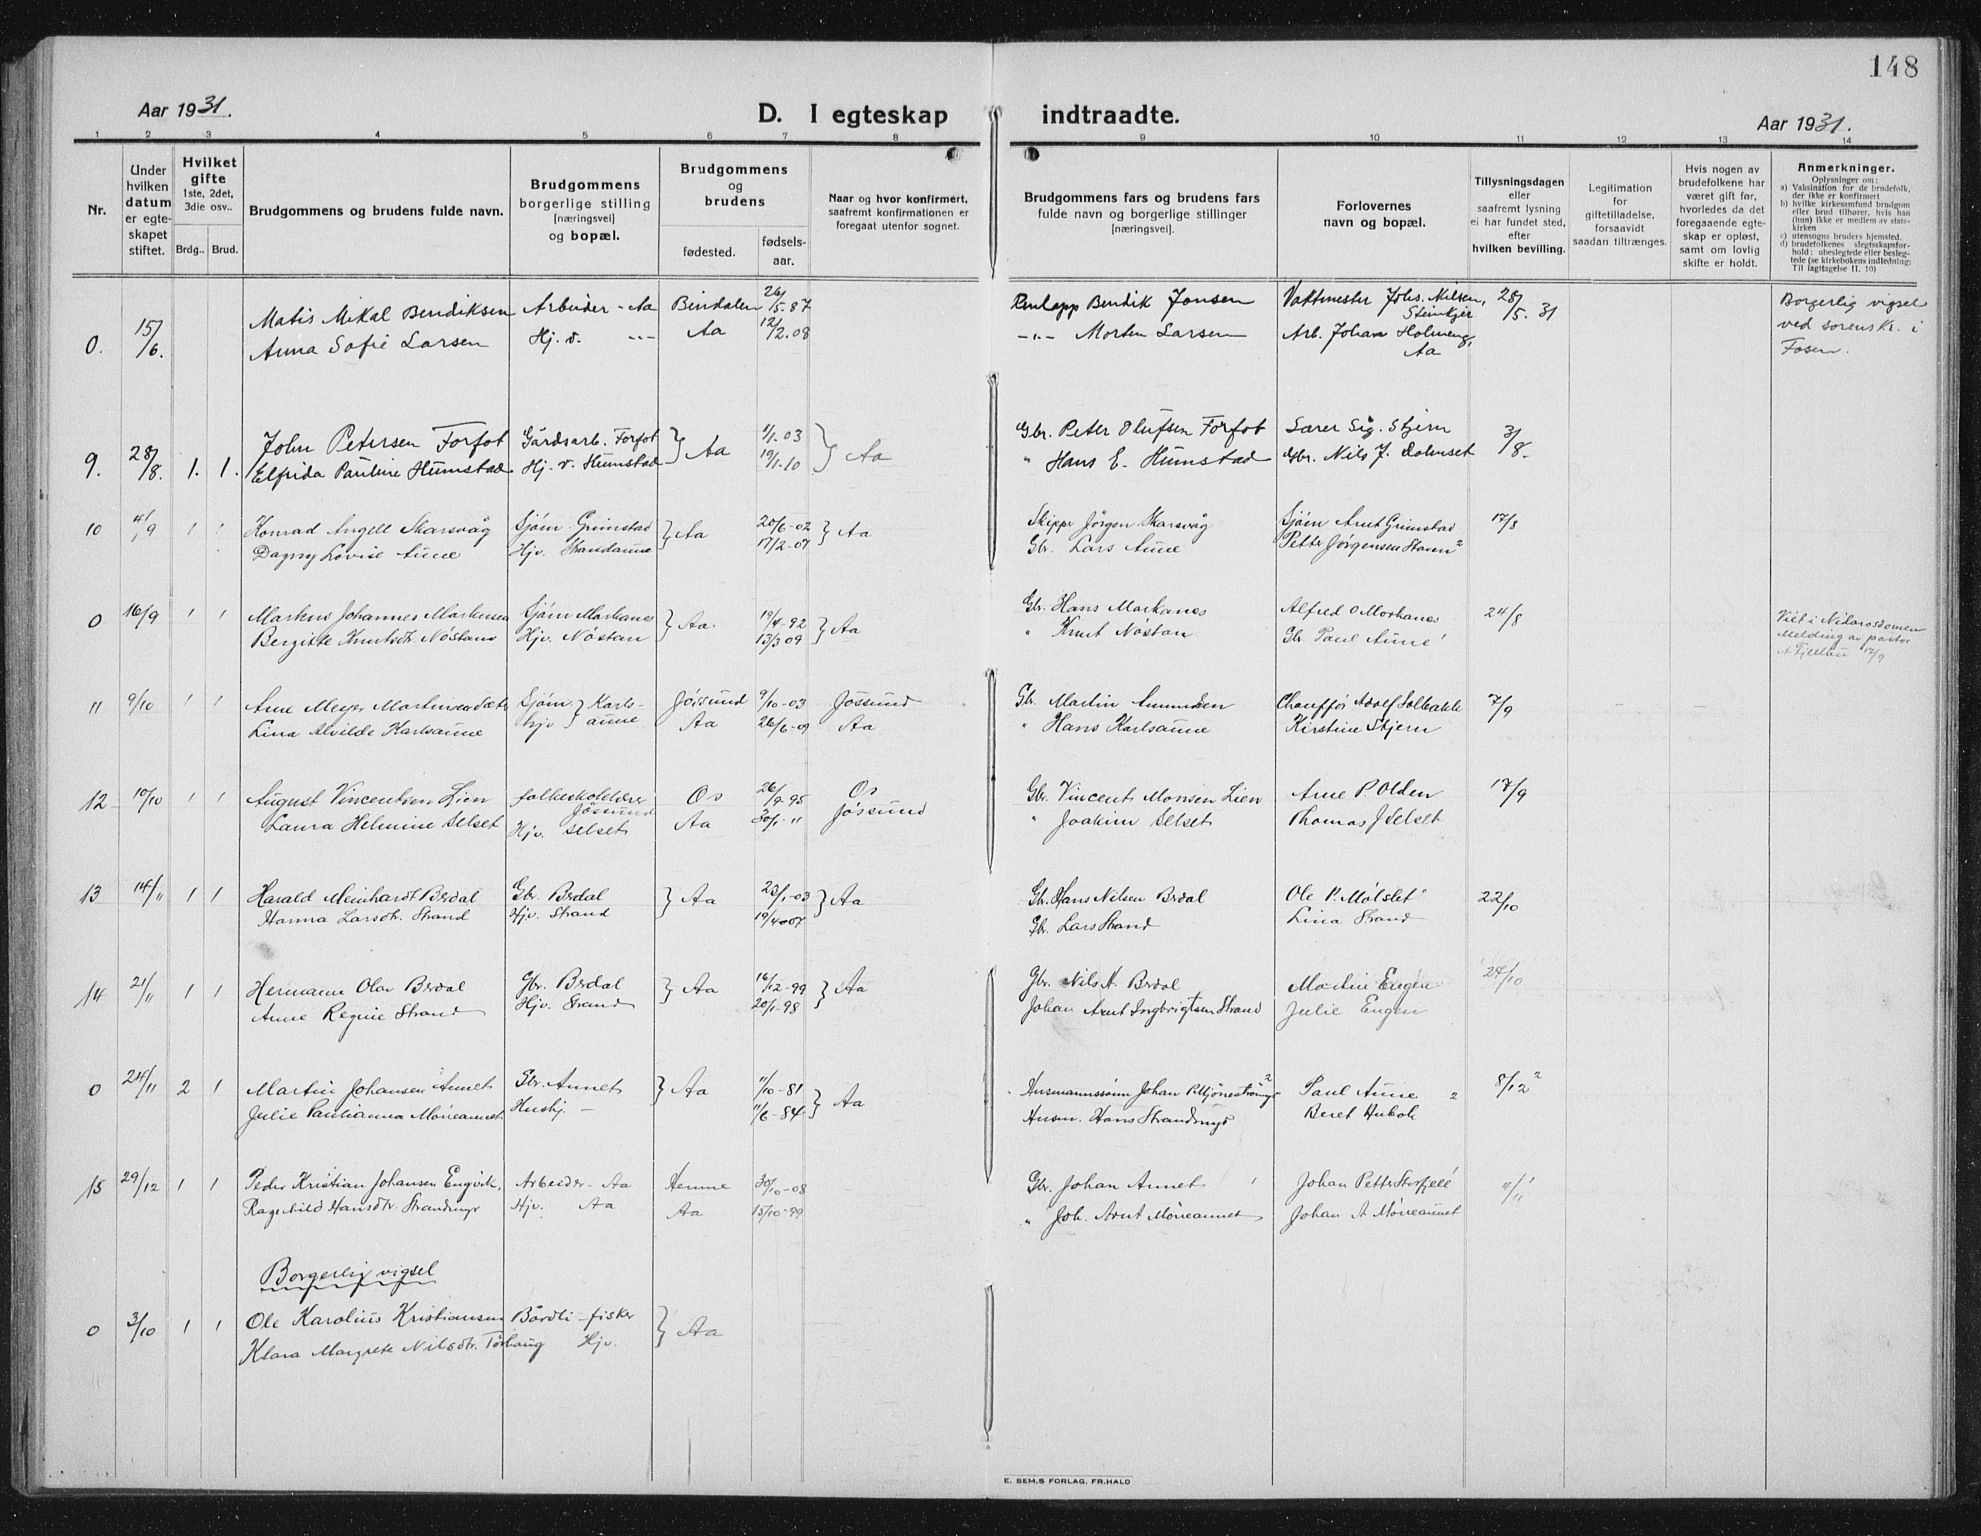 148
Aar 1931.
D. I egteskap indtraadte.
Aar 1931.
1 2 3 4 5 6 7 8 9 10 11 12 13 14
Nr.
Under hvilken datum er egteskapet stiftet.
Hvilket gifte 1ste, 2det, 3die osv..
Brdg.. Brud.
Brudgommens og brudens fulde navn.
Brudgommens borgerlige stilling [næringsvei] og bopæl.
Brudgommens og brudens
fødested.
fødsels-aar.
Naar og hvor konfirmert, saafremt konfirmationen er foregaat utenfor sognet.
Brudgommens fars og brudens fars fulde navn og borgerlige stillinger [næringsvei].
Forlovernes navn og bopæl.
Tillysningsdagen eller saafremt lysning ei har fundet sted, efter hvilken bevilling.
Legitimation for giftetilladelse, forsaavidt saadan tiltrænges.
Hvis nogen av brudefolkene har været gift før, hvorledes da det foregaaende egteskap er opløst, samt om lovlig skifte er holdt.
Anmerkninger.
Oplysninger om:
a) Vaksination for de brudefolk, der ikke er konfirmert
b) hvilke kirkesamfund brudgom eller brud tilhører, hvis han (hun) ikke er medlem av statskirken
c) utensogns bruders hjemsted.
d) brudefolkenes slegtsskapsforhold: ubeslegtede eller beslegtede (se kirkebokens indledning: Til iagttagelse II. 10)
0. 15/6. Matis Mikal Bendiksen Arbeider - Aa Bindalen 26/5. 87 Bendik Jonsen Vaktmester Johs. Nilsen, Steinkjer 28/5. 31 Borgerlig vigsel
Anna Sofie Larsen Hj. v. -"- Aa 12/2. 08 -"- Morten Larsen Arb. Johan Holmeng, Aa ved sorenskr. i Fosen.
9. 28/8. 1. 1. John Petersen Forfot Gårdsarb. Forfot } Aa 1/1-03 } Aa Gbr. Peter Olufsen Forfot Lærer Sig. Stjern 3/8-
Elfrida Pauline Humstad Hj. v. Humstad 19/1-10 " Hans E. Humstad Gbr. Nils J. Dolmset
10 4/9 1 1 Konrad Angell Skarsvåg Sjøm. Grimstad } Aa 20/6-02 } Aa Skipper Jörgen Skarsvåg Sjöm Arnt Grimstad 17/8
Dagny Lovise Aune Hjv. Strandaune 17/2-07 Gbr. Lars Aune Petter Jørgensen
0 16/9 1 1 Markus Johannes Markussen Sjöm Markanes } Aa. 19/4-92 } Aa Gbr. Hans Morkanes Alfred O Morkanes 24/8 Viet i Nidarosdomen
Bergitte Knutsdtr Nöstan Hjv. Nöstan 13/3 09 " Knut Nöstan Gbr. Paul Aune Melding av pastor 12/9
11 9/10 1 1 Arne Meyer Martinsen Sæter Sjöm. } Karls-aune Jössund 9/10-03 Jössund Gbr. Martin Amundsen Chauffør Adolf Solbakk 7/9
Lina Alvilde Karlsaune Hjv. Aa 26/6-09 Aa " Hans Karlsaune Kirstine Stjern
12 10/10 1 1 August Vincentsen Lien folkeskolelærer Jössund Os 26/9 95 Os Gbr. Vincent Monsen Lien Arne P. Olden 17/9
Laura Helmine Selset Hjv. Selset Aa 30/1-11 Jössund " Joakim Selset Thomas J Selset
13 14/11 1 1 Harald Meinhardt Berdal Gbr. Berdal } Aa 23/1-03 } Aa Gbr. Hans Nilsen Berdal Ole P. Mölslet 22/10
Hanna Larsdtr. Strand Hjv. Strand 19/4-07 Gbr. Lars Strand Lina Strand
14 21/11 1 1 Hermann Olav Berdal Gbr. Berdal } Aa 16/12-99 } Aa Gbr. Nils H. Berdal Martin Engen 24/10
Anne Regine Strand Hjv. Strand 20/1-98 Johan Arnt Ingbrigtsen Strand Julie Engen
0 24/11 2 1 Martin Johansen Annet Gbr. Annet } Aa 11/10-81 } Aa Husmannssönn Johan Paul Aune 2 8/12 2
Julie Paulianna Möneannet Hushj. - 11/6-84 Husm. Hans Strandmyr Beret Hubak
15 29/12 1 1 Peder Kristian Johansen Engvik. Arbeider- Aa Hemne 30/10-08 Gbr. Johan Annet Johan Petter Storfjell 4/11
Ragnhild Hansdtr. Strandmyr Hjv. Aa Aa 15/10-99 " Joh. Arnt Möneannet Johan A. Möneaunet
Borgerlig vigsel
0 3/10 1 1 Ole Karolius Kristiansen Bårdli fisker } Aa
Klara Margrete Nilsdtr. Torhaug Hjv.
E. SEM,S FORLAG, FR.HALD